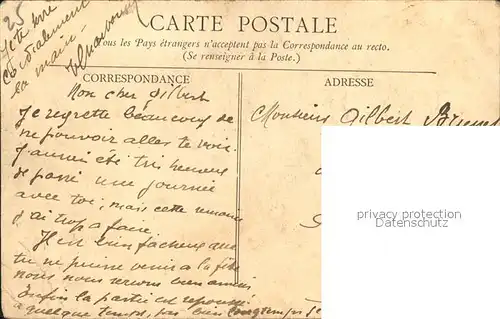 25
Je te serre
cordialement
la main
CARTE POSTALE
Tous les Pays étrangers n'acceptent pas la Correspondance au recto.
(Se renseigner à la Poste.)
CORRESPONDANCE
ADRESSE
Mon cher Gilbert
Monsieur Gilbert
Je regrette beaucoup de
ne pouvoir aller te voir.
J'aurais été très heureux
de passé une journée
avec toi, mais cette semaine
j'ai trop a faire.
Il est bien facheux que
tu ne puisse venir a la fête
nous nous serions bien amusés
Enfin la partie est repoussée
a quelque temps, pas bien longtemps je
privacy protection
Datenschutz